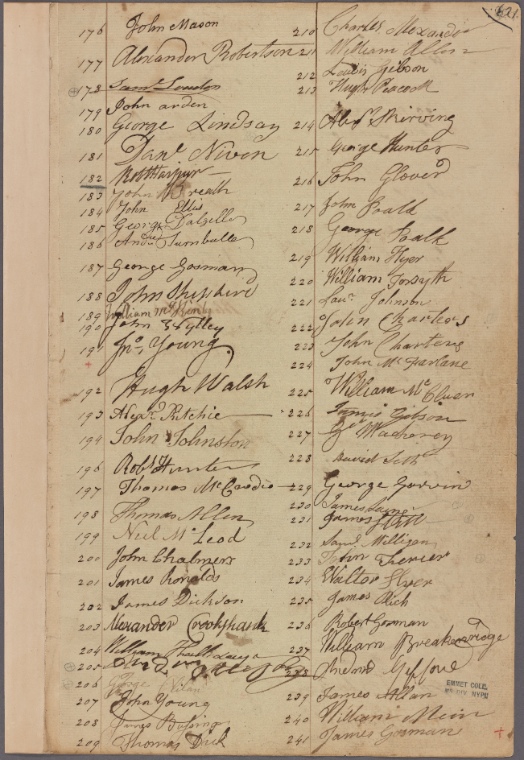 621
176 John Mason
177 Alexander Robertson
178 Saml Loudon
179 John arden
180 George Lindsay
181 Danl Niven
182
183 John
184 John Ellis
185 George Dalzelle
186 Andw Turnbull
187 George Gosman
188 John Shepherd
189 William
190 John
191 Jno. Young
192 Hugh Walsh
193 Alexr Ritchie
194 John Johnston
196 Robt Hunter
197 Thomas McCready
198 Thomas Allen
199 Neil McLeod
200 John Chalmers
201 James Ronalds
202 James Dickson
203 Alexander Crookshank
204 William
205
206 George
207 John Young
208 James
209 Thomas Dick
210 Charles Alexander
211 William Allon
212 Lewis Gibson
213 Hugh Peacock
214 Alexr Skirving
215 George Hunter
216 John Glover
217 John Bald
218 George Bald
219 William Hyer
220 William Forsyth
221 Lawr Johnson
222 John Charters
223 John Charters
224 John McFarlane
225 William McCluer
226 James Gibson
227
228 David Seth
229 George Gosvin
230 James
231 James
232 Saml Milligan
233 John
234 Walter Hyer
235 James Rich
236 Robert Gosman
237 William Breakenridge
238
239 James Allan
240 William Neim
241 James Gosman
EMMET COLL.
MS. DIV. NYPL